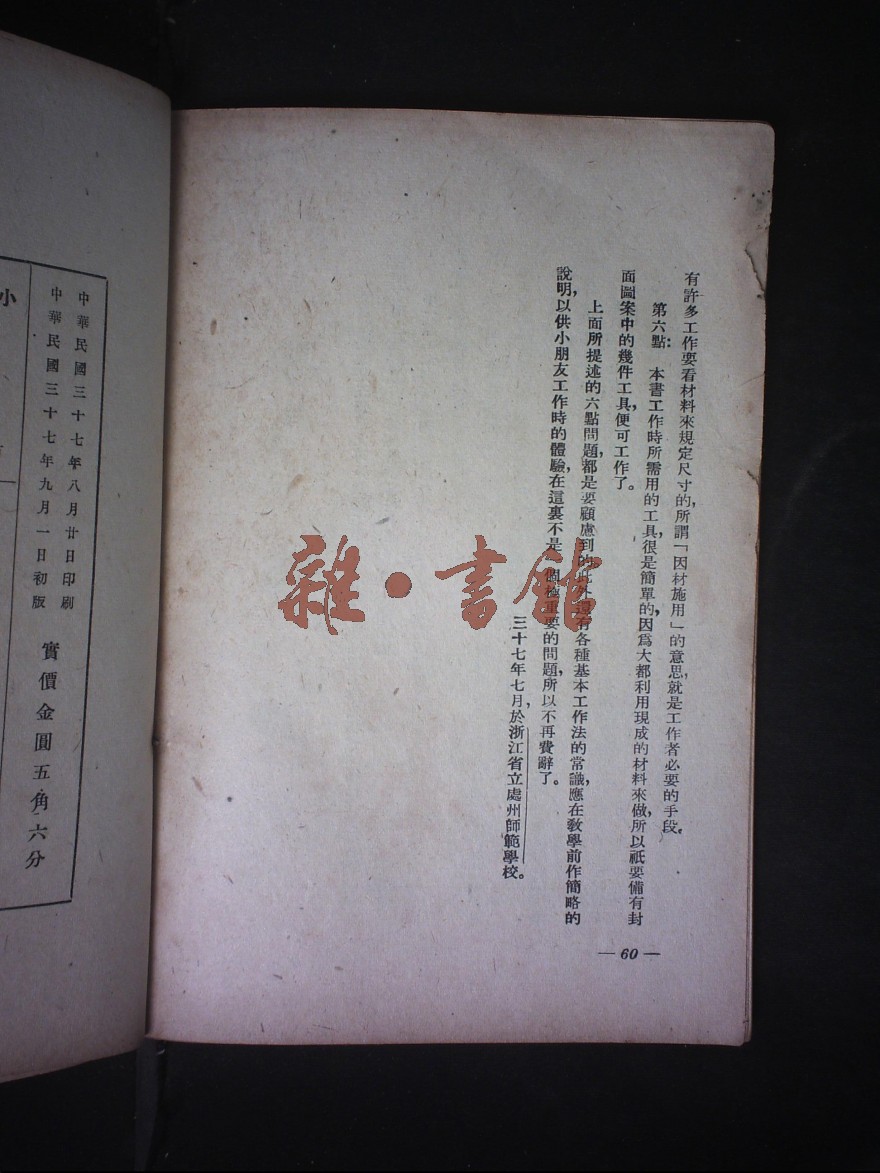 有許多工作要看材料來規定尺寸的,所謂「因材施用」的意思,就是工作者必要的手段。
第六點: 本書工作時所需用的工具,很是簡單的,因爲大都利用現成的材料來做,所以祇要備有封
面圖案中的幾件工具,便可工作了。
上面所提述的六點問題,都是要顧慮到的。此外還有各種基本工作法的常識,應在敎學前作簡略的
說明,以供小朋友工作時的體驗,在這裏不是一個極重要的問題,所以不再費辭了。
三十七年七月,於浙江省立處州師範學校。
— 60 —
雜·書館
小
中華民國三十七年八月廿日印刷
中華民國三十七年九月一日初版
實價金圓五角六分